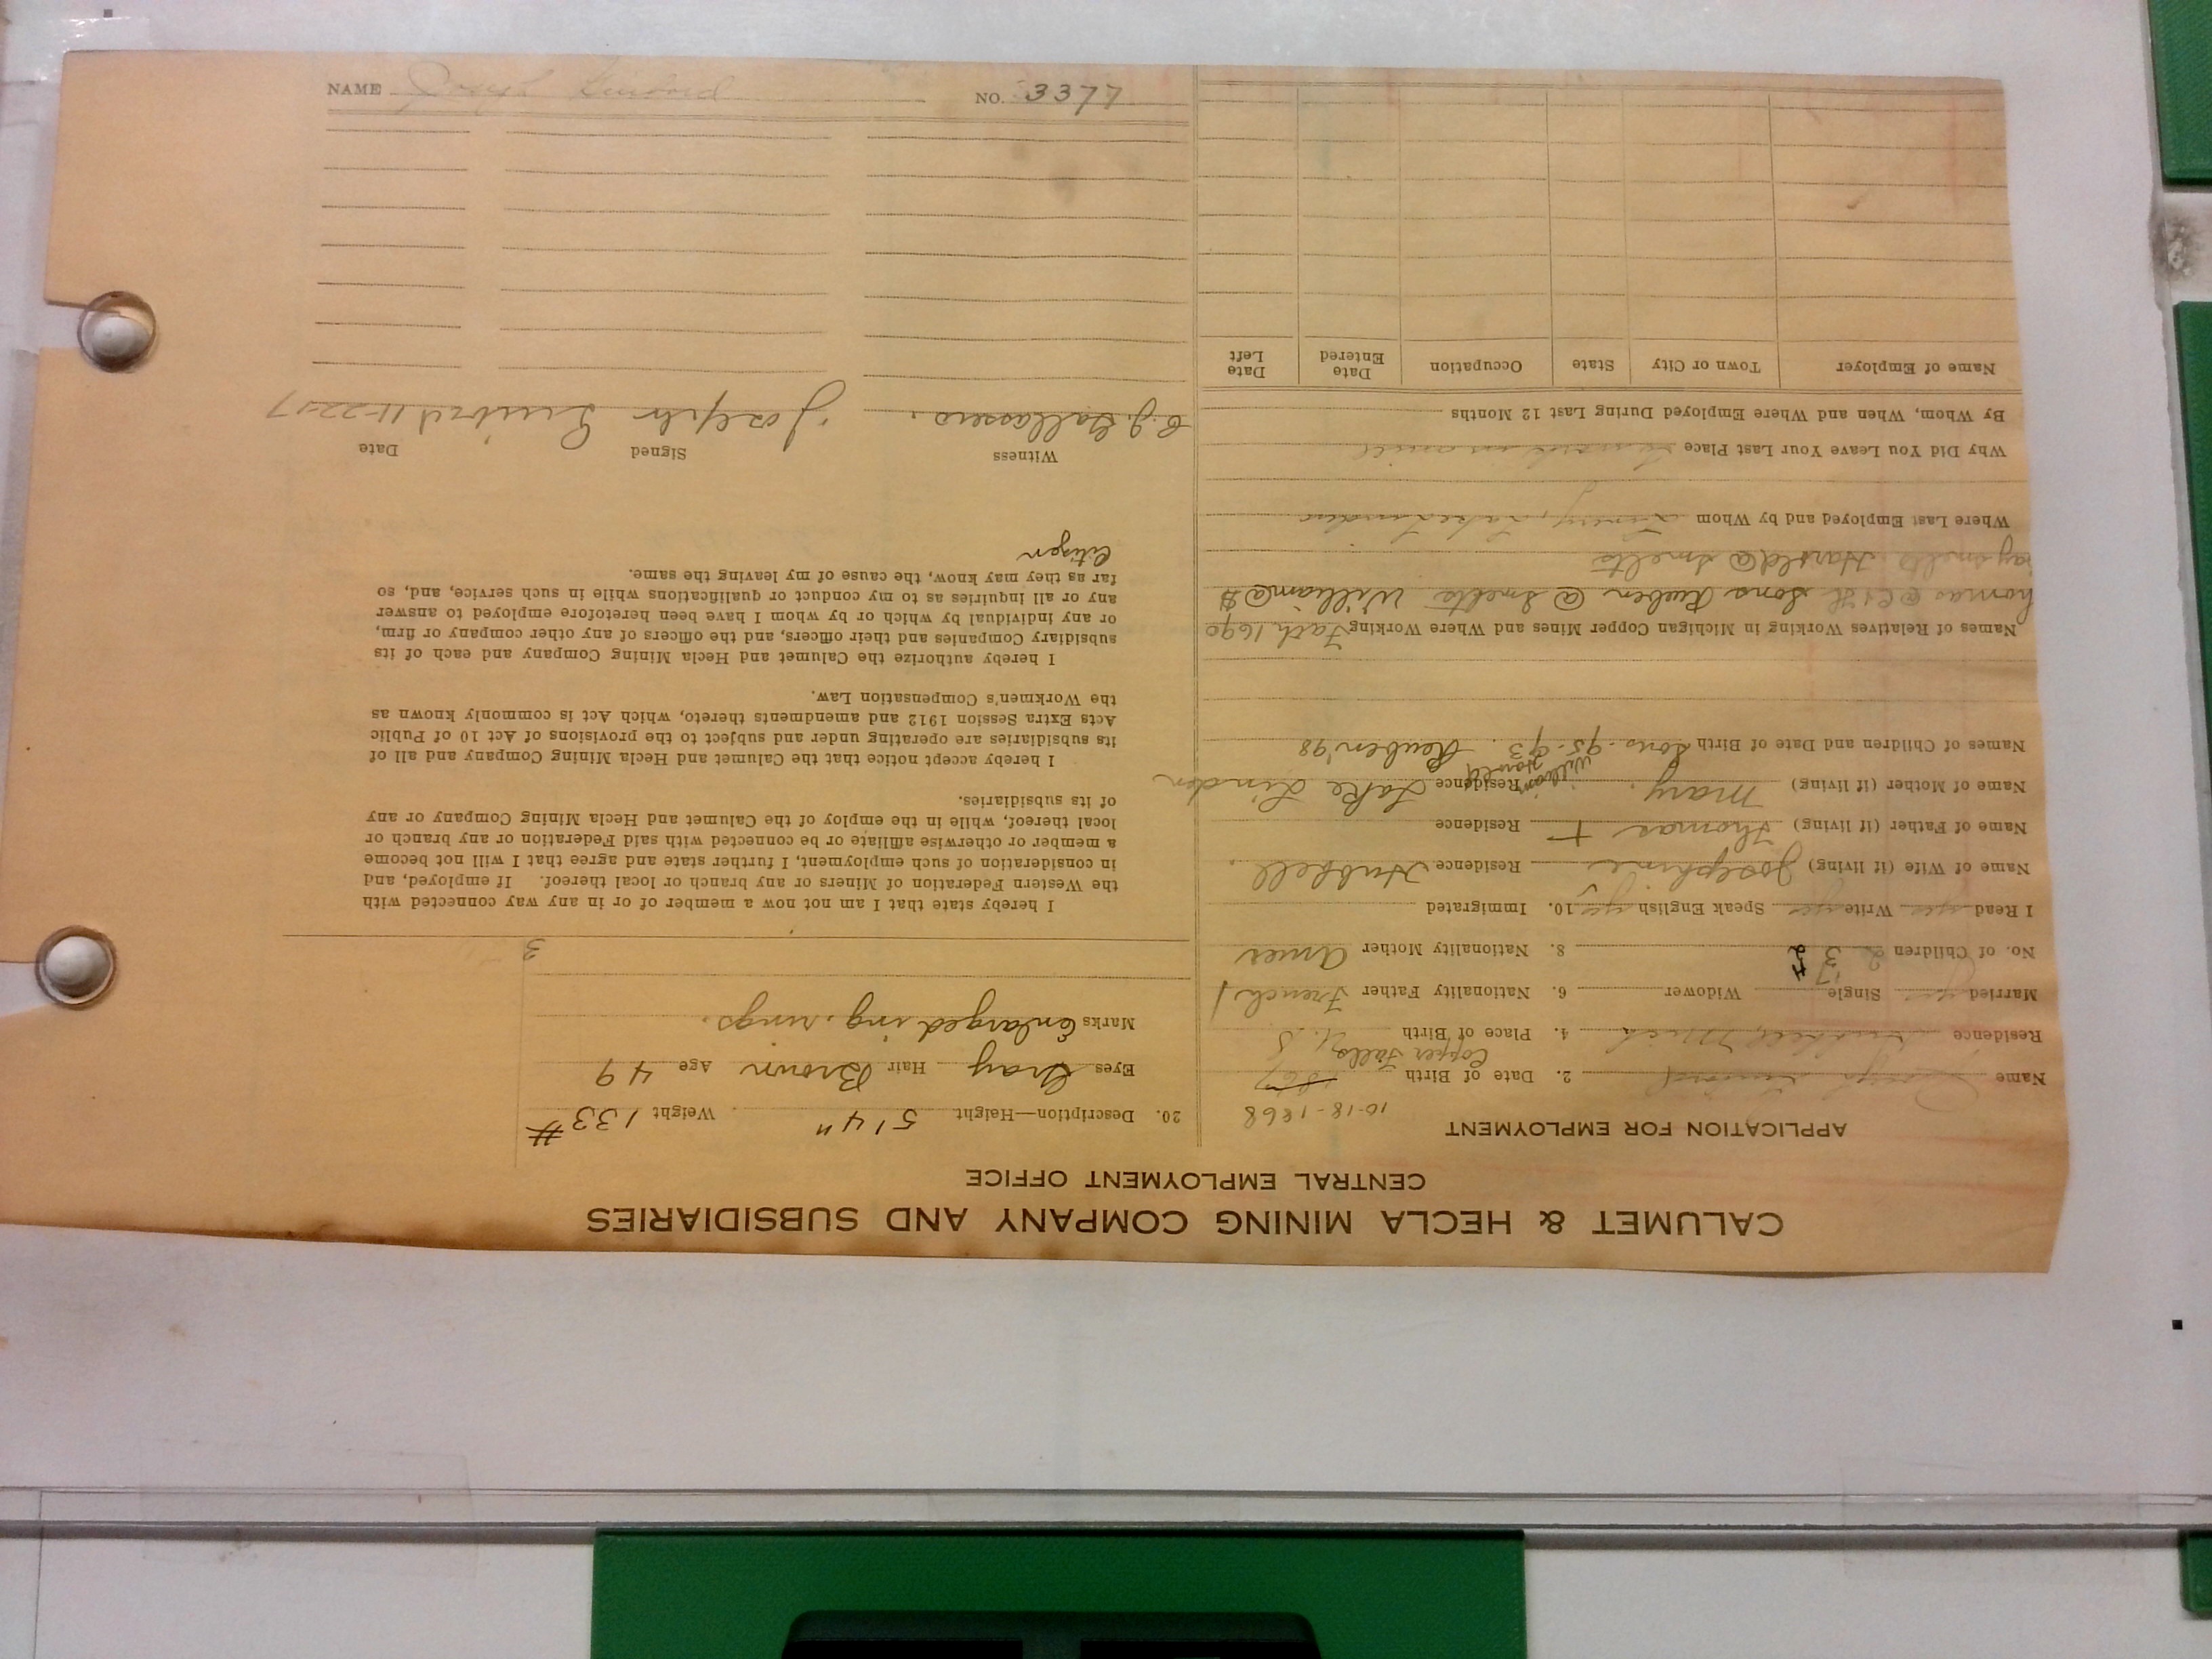 CALUMET & HECLA MINING COMPANY AND SUBSIDIARIES
CENTRAL EMPLOYMENT OFFICE
APPLICATION FOR EMPLOYMENT
10-18-1868
Name Joseph 2. Date of Birth 1867
Residence Hubbell, Mich 4. Place of Birth Copper Falls, U.S
Married yes Single Widower 6. Nationality Father French
No. of Children 2 3 8. Nationality Mother Amer
I Read yes Write yes Speak English yes 10. Immigrated
Name of Wife (if living) Josephine Residence Hubbell
Name of Father (if living) Thomas † Residence
Name of Mother (if living) Mary. Residence Lake Linden
William Harold
Names of Children and Date of Birth Sons-95-93. Reuben '98
Names of Relatives Working in Michigan Copper Mines and Where Working 1690
homas @ C & H Sons Reuben @ Smelts William @
Smelts Harold @ Smelts
Where Last Employed and by Whom Lake Linden
Why Did You Leave Your Last Place
By Whom, When and Where Employed During Last 12 Months
Name of Employer Town or City State Occupation Date Entered Date Left
20. Description—Height 5'4" Weight 133#
Eyes Gray Hair Brown Age 49
Marks Enlarged ing. rings.
3
I hereby state that I am not now a member of or in any way connected with
the Western Federation of Miners or any branch or local thereof. If employed, and
in consideration of such employment, I further state and agree that I will not become
a member or otherwise affiliate or be connected with said Federation or any branch or
local thereof, while in the employ of the Calumet and Hecla Mining Company or any
of its subsidiaries.
I hereby accept notice that the Calumet and Hecla Mining Company and all of
its subsidiaries are operating under and subject to the provisions of Act 10 of Public
Acts Extra Session 1912 and amendments thereto, which Act is commonly known as
the Workmen's Compensation Law.
I hereby authorize the Calumet and Hecla Mining Company and each of its
subsidiary Companies and their officers, and the officers of any other company or firm,
or any individual by which or by whom I have been heretofore employed to answer
any or all inquiries as to my conduct or qualifications while in such service, and, so
far as they may know, the cause of my leaving the same.
Citizen
Witness Signed Date
Joseph 11-22-17
NAME Joseph NO. 3377